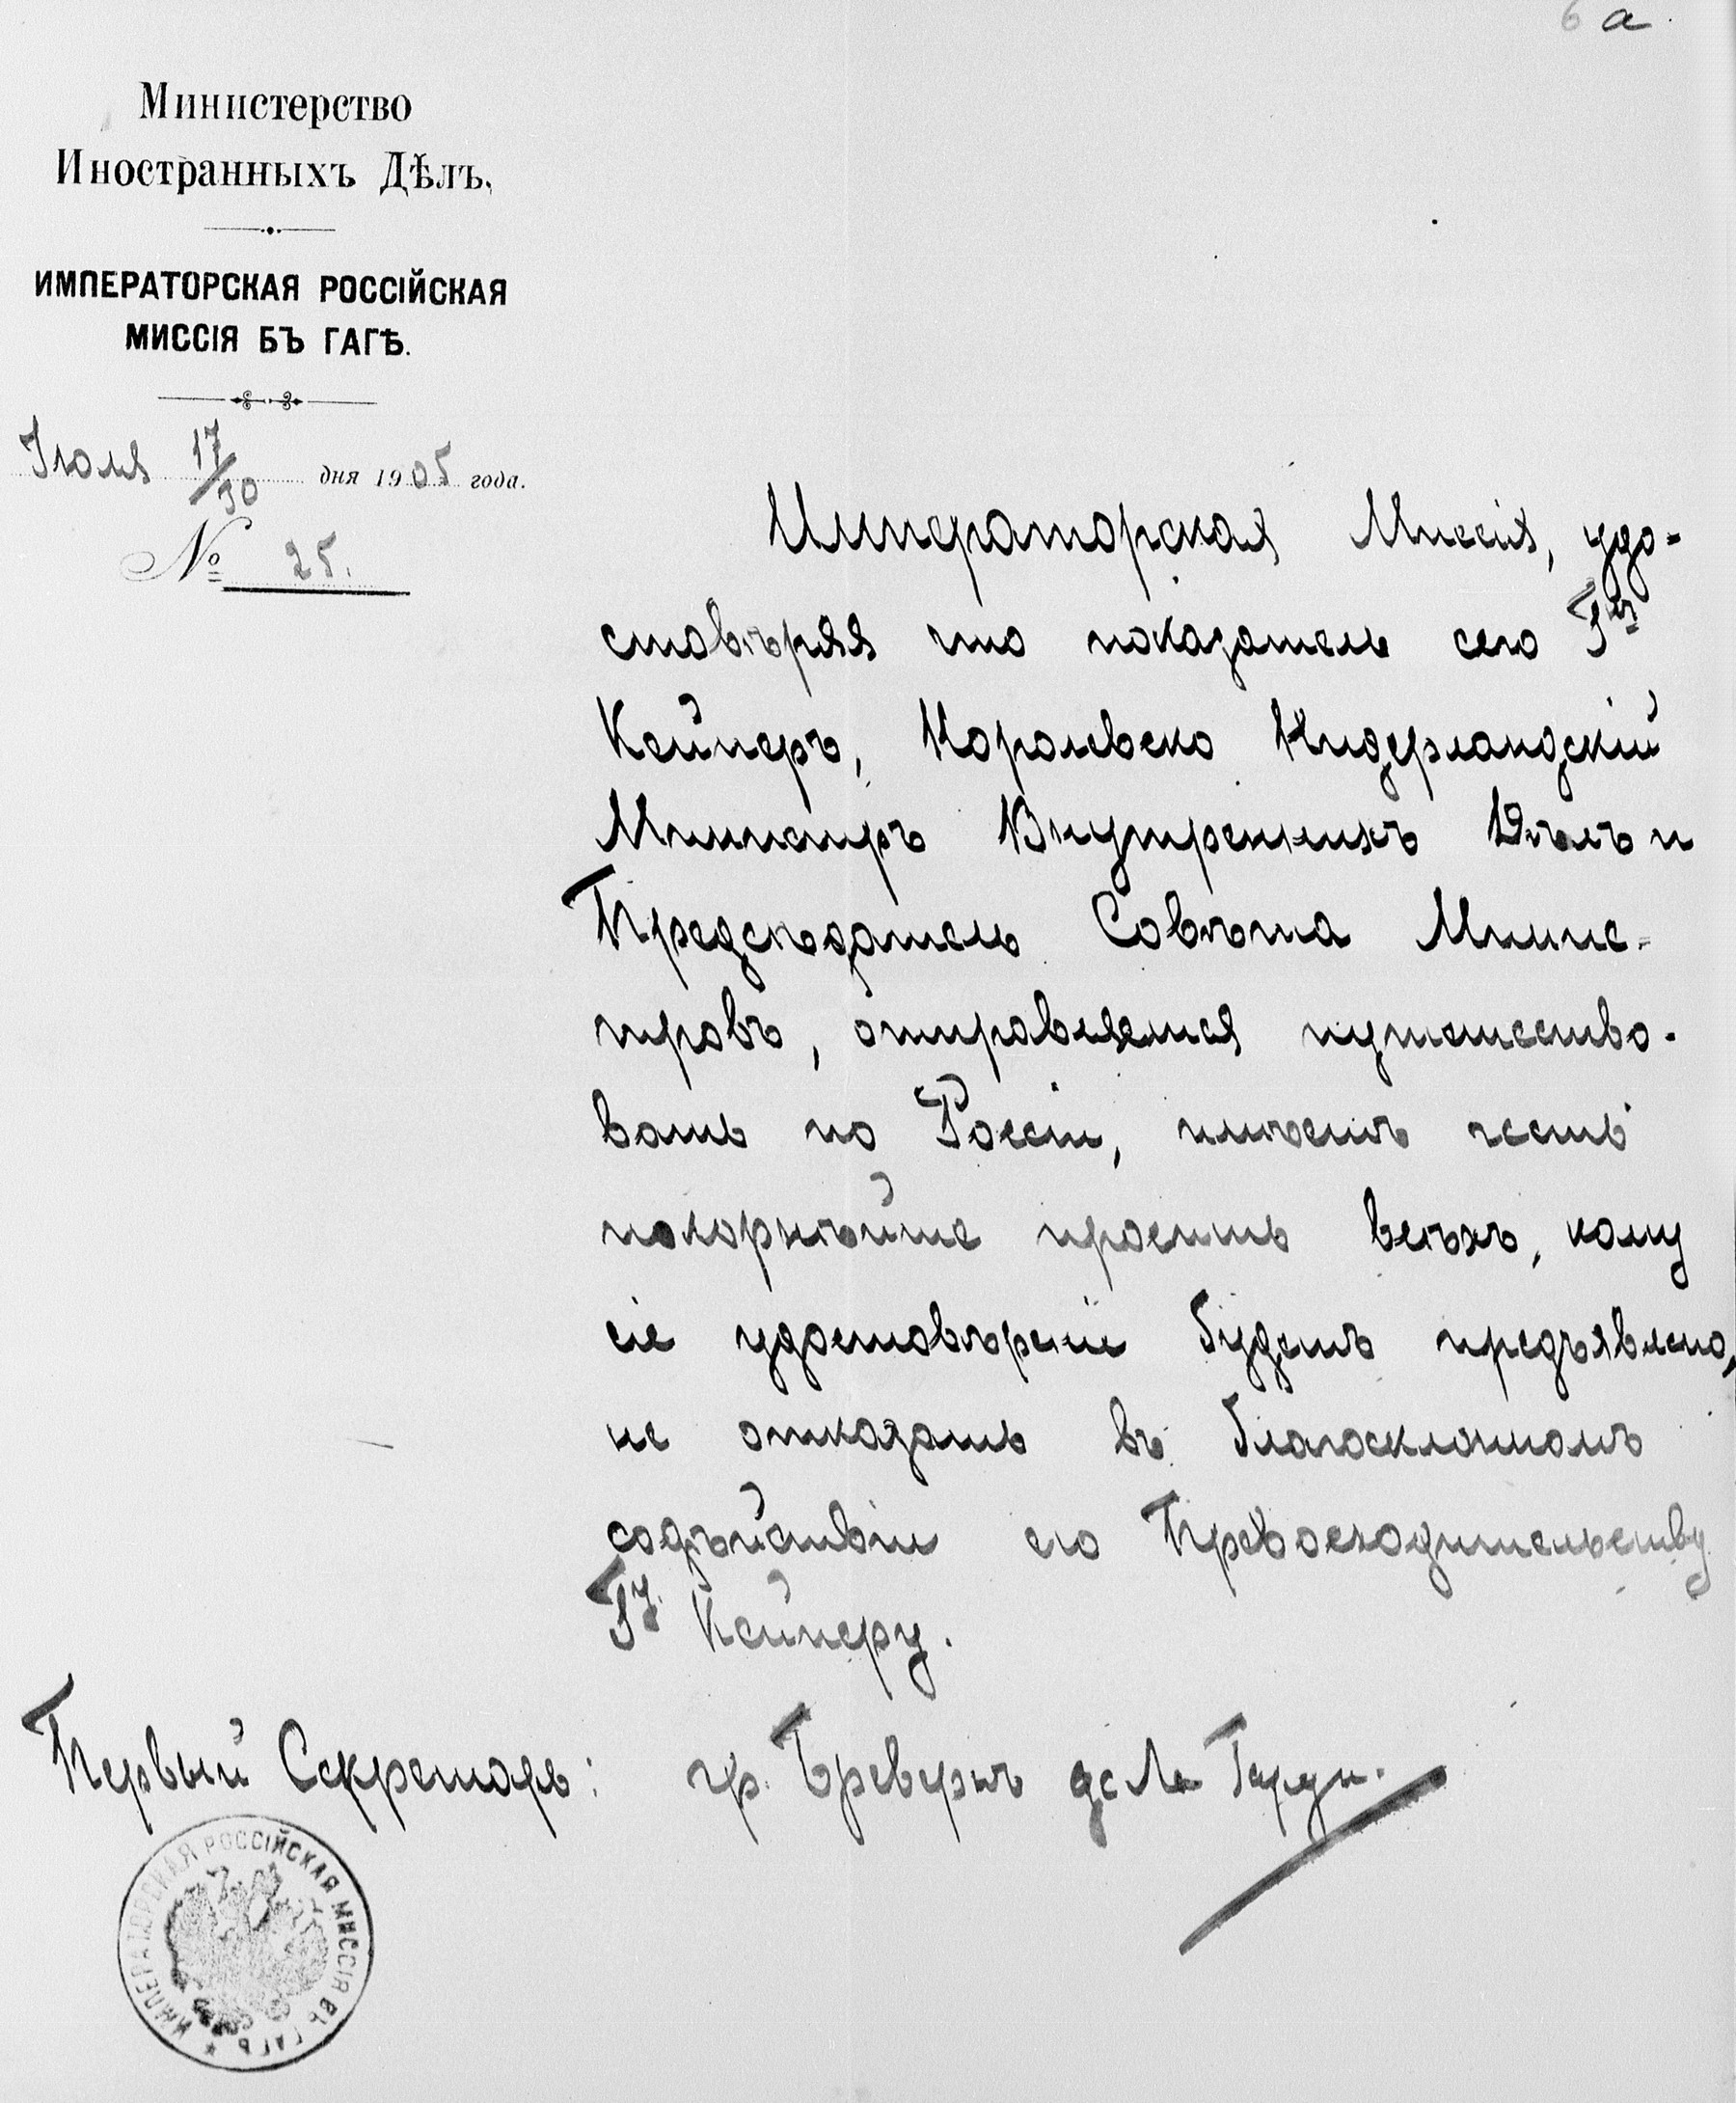 6 a
Министерство
Иностранныхъ Дѣлъ.
ИМПЕРАТОРСКАЯ РОССІЙСКАЯ
МИССІЯ БЪ ГАГѢ.
Іюля 17/30 дня 1905 года.
№ 25.
Императорская Миссія, удо-
стовѣряя что показатель сего Гнъ
Кейперъ, Королевско Нидерландскій
Министръ Внутреннихъ Дѣлъ и
Предсѣдатель Совѣта Минис-
тровъ, отправляется путешество-
вать по Россіи, имѣетъ честь
покорнѣйше просить всѣхъ, кому
сіе удостовѣреніе будетъ предъявлено,
не отказать въ благосклонномъ
содѣйствіи его Превосходительству
Гу. Кейперу.
Первый Секретарь: гр. Бревернъ де Ла Гарди.
ИМПЕРАТОРСКАЯ РОССІЙСКАЯ МИССІЯ ВЪ ГАГѢ *